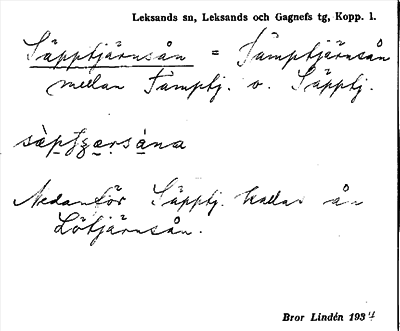 Leksands sn, Leksands och Gagnefs tg, Kopp. l.
Säpptjärnsån = Tämptjärnsån
mellan Tamptj. o. Säpptj.
Nedanför Säpptj. kallas ån
Lötjärnsån.
Bror Lindén 1934